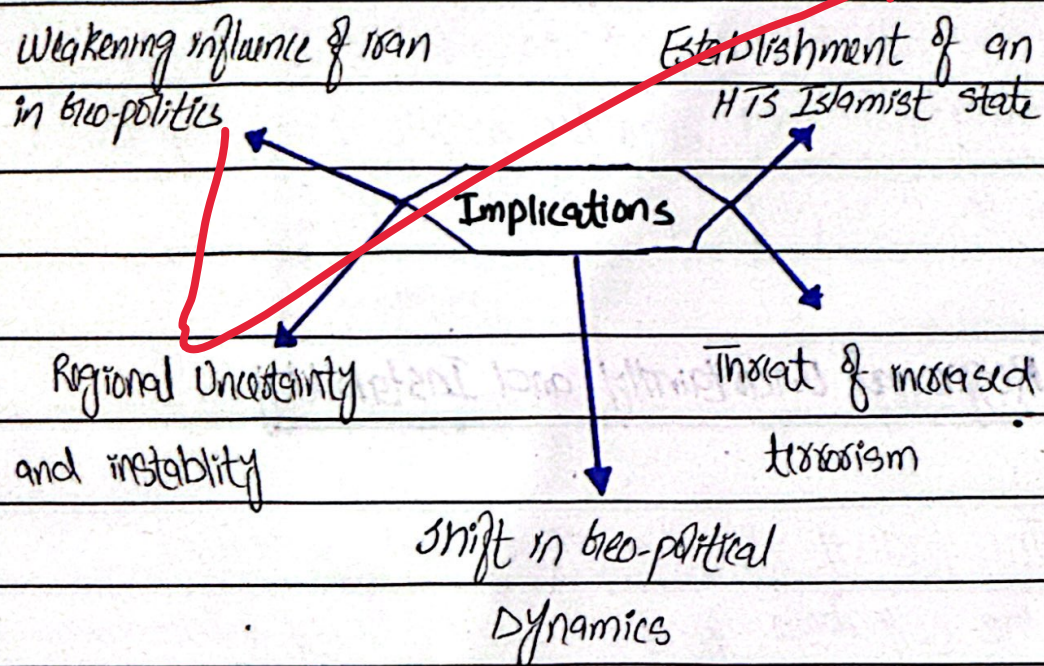 Weakening influence of iran
in Geo-politics
Establishment of an
HTS Islamist state
Implications
Regional Uncertainty
and instablity
Threat of increased
terrorism
Shift in Geo-political
Dynamics